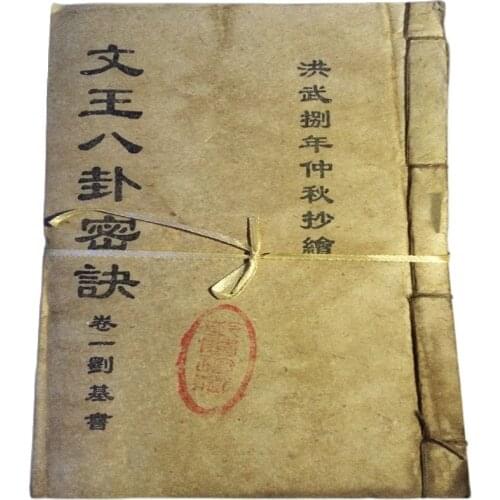 洪武捌年仲秋抄繪
文王八卦密訣
卷一劉基書